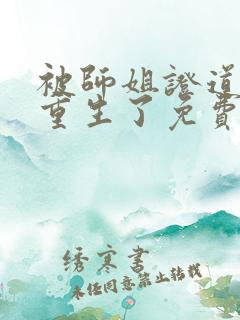 被師姐證道
重生了免費
绣寒書
未经同意禁止转载